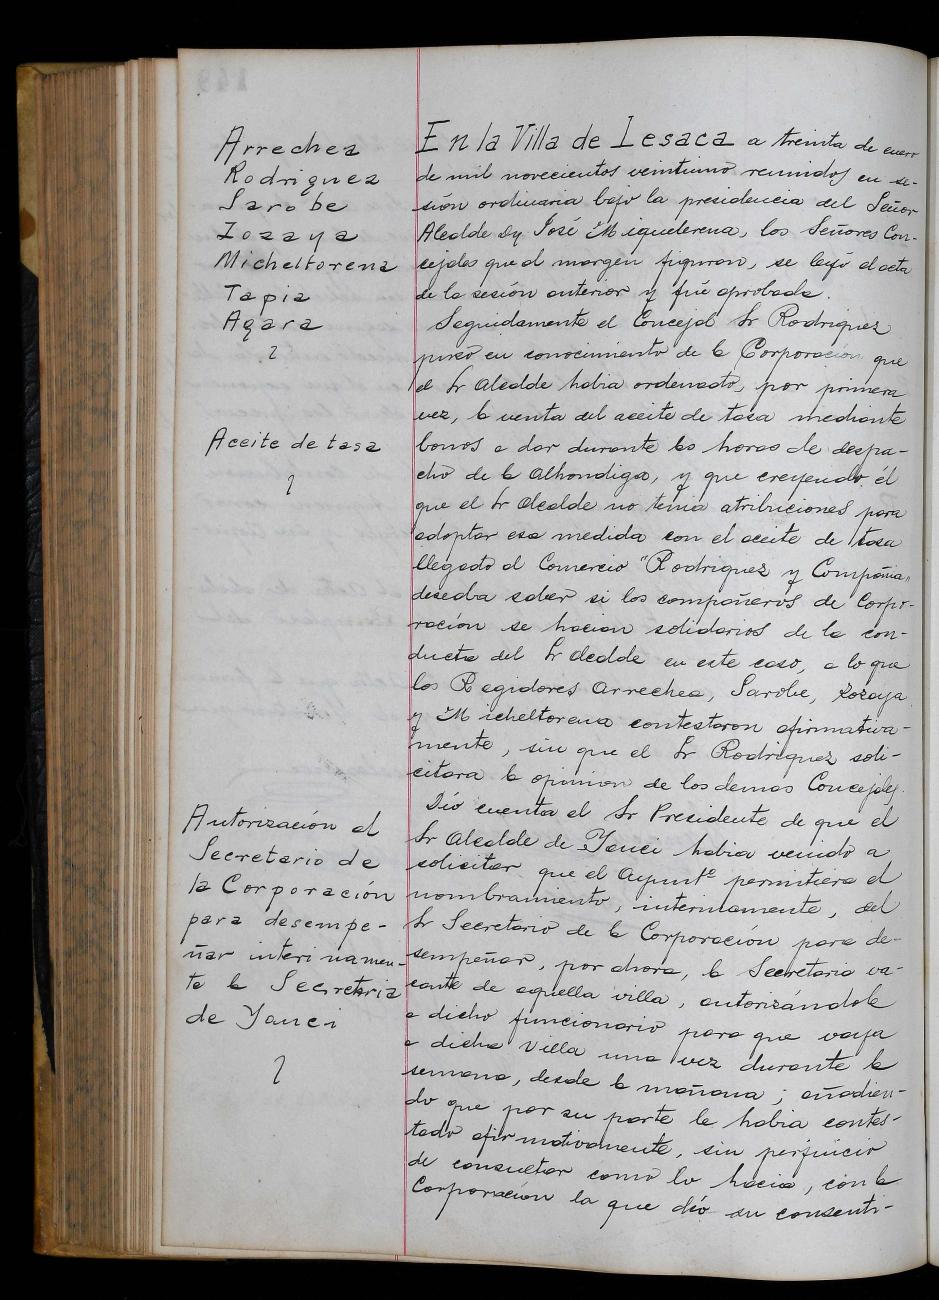 Arrechea
Rodriguez
Sarobe
Zozaya
Micheltorena
Tapia
Agara
Aceite de tasa
Autorización al
Secretario de
la Corporación
para desempe-
ñar interinamen-
te la Secretaria
de Yanci
En la Villa de Lesaca a treinta de enero
de mil novecientos veintiuno reunidos en se-
sión ordinaria bajo la presidencia del Señor
Alcalde Dn José Miquelerena, los Señores Con-
cejales que al margen figuran, se leyó el acta
de la sesión anterior y fué aprobada.
Seguidamente el Concejal Sr Rodriguez
puso en conocimiento de la Corporación que
el Sr Alcalde habia ordenado, por primera
vez, la venta del aceite de tasa mediante
bonos a dar durante las horas de despa-
cho de la Alhondiga, y que creyendo él
que el Sr Alcalde no tenia atribuciones para
adoptar esa medida con el aceite de tasa
llegado al Comercio "Rodriguez y Compañia"
deseaba saber si los compañeros de Corpo-
ración se hacian solidarios de la con-
ducta del Sr Alcalde en este caso, a lo que
los Regidores Arrechea, Sarobe, Zozaya
y Micheltorena contestaron afirmativa-
mente, sin que el Sr Rodriguez soli-
citara la opinion de los demas Concejales.
Dió cuenta el Sr Presidente de que el
Sr Alcalde de Yanci habia venido a
solicitar que el Ayuntº permitiera el
nombramiento, interinamente, del
Sr Secretario de la Corporación para de-
sempeñar, por ahora, la Secretaria va-
cante de aquella villa, autorizandole
a dicho funcionario para que vaya
a dicha Villa una vez durante la
semana, desde la mañana; añadien-
do que por su parte le habia contes-
tado afirmativamente, sin perjuicio
de consultar como lo hacia, con la
Corporación la que dió su consenti-